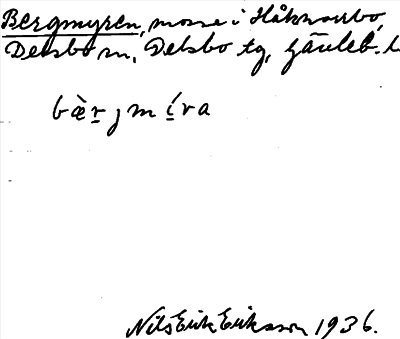 Bergmyren, mosse i Håknorbo,
Delsbo sn, Delsbo tg, Gävleb. l
bæ̀r̲jmí̲ra
Nils Erik Eriksson 1936.